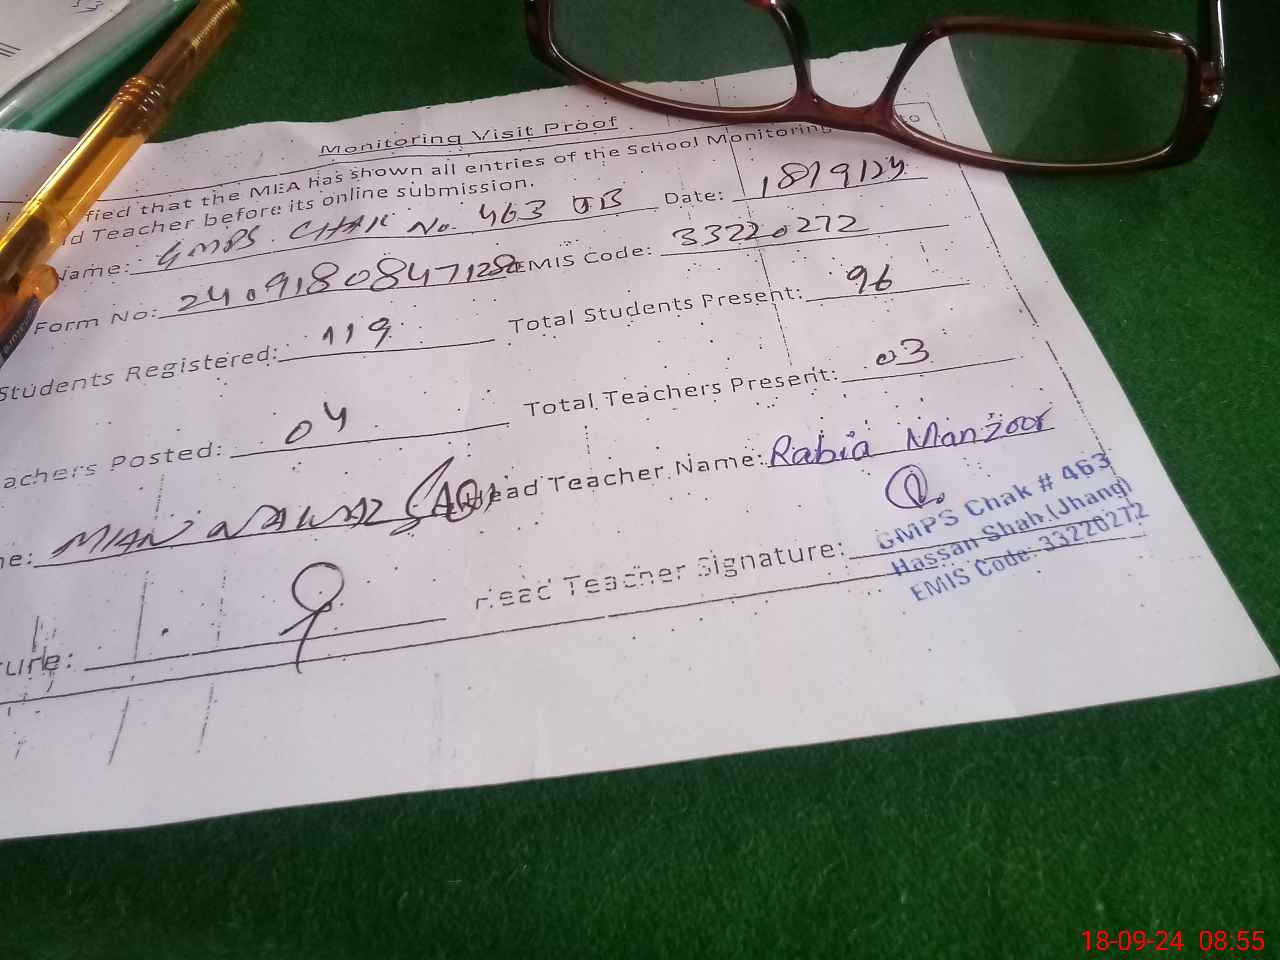 Monitoring Visit Proof
fied that the MEA has shown all entries of the School Monitoring to
d Teacher before its online submission.
Name: GMPS CHAK No. 463 JB Date: 18/9/24
Form No: 240918084712 EMIS Code: 33220272
Students Registered: 119 Total Students Present: 96
achers Posted: 04 Total Teachers Present: 03
ne: MIAN NAWAZ Head Teacher Name: Rabia Manzoor
ure: Head Teacher Signature:
GMPS Chak # 463
Hassan Shah (Jhang)
EMIS Code: 33220272
18-09-24 08:55